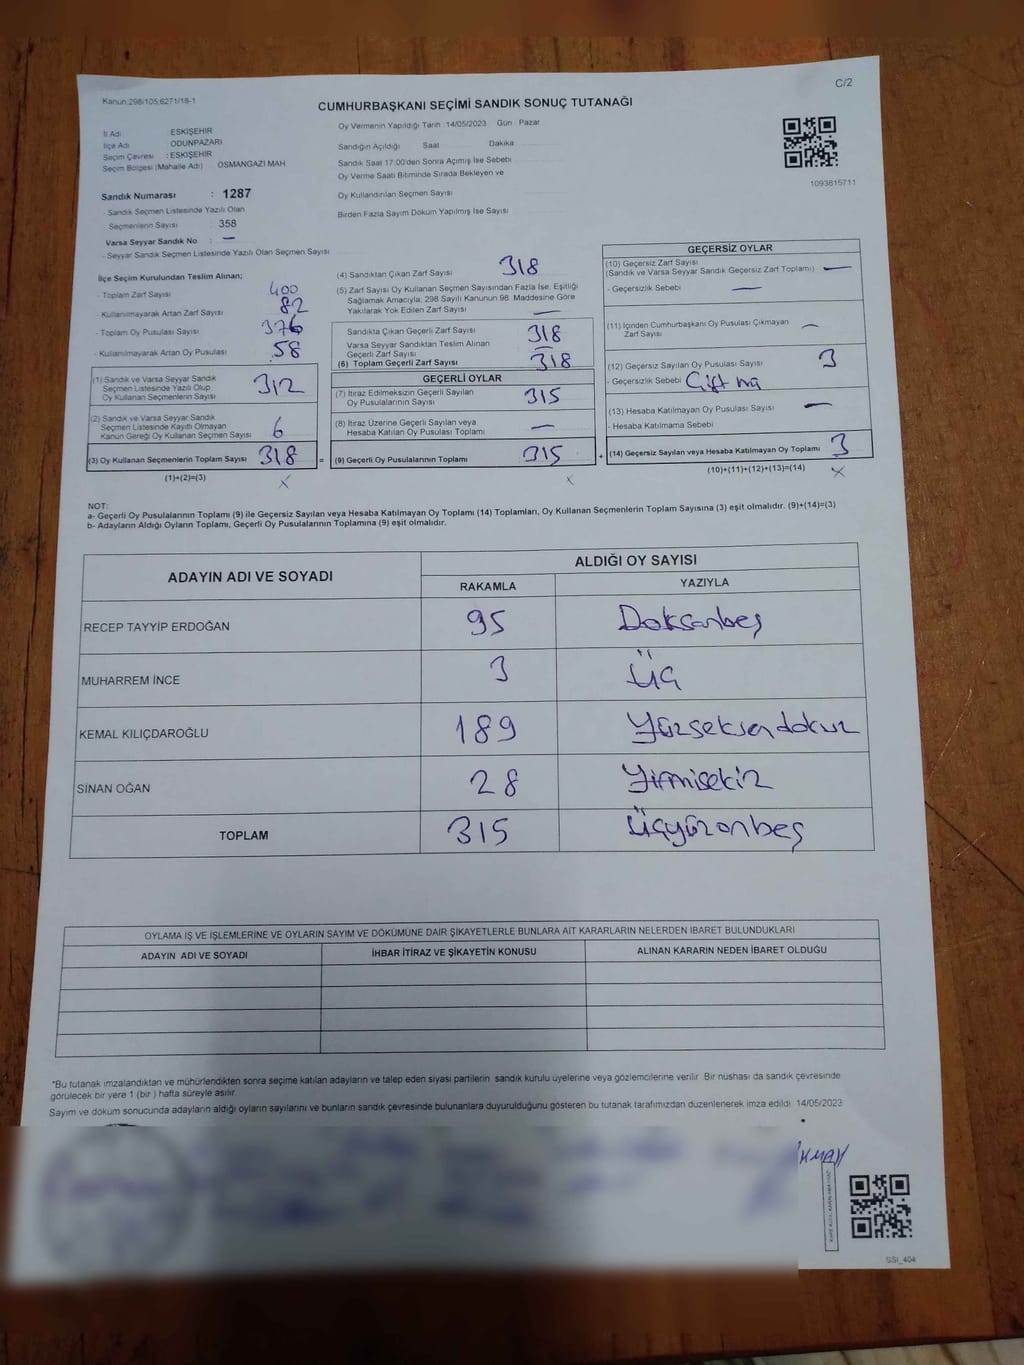 C/2
Kanun:298/105;6271/18-1
CUMHURBAŞKANI SEÇİMİ SANDIK SONUÇ TUTANAĞI
İl Adı ESKİŞEHİR
İlçe Adı ODUNPAZARI
Seçim Çevresi : ESKİŞEHİR
Seçim Bölgesi (Mahalle Adı) OSMANGAZİ MAH
Oy Vermenin Yapıldığı Tarih :14/05/2023 Gün : Pazar
Sandığın Açıldığı Saat Dakika
Sandık Saat 17:00'den Sonra Açımış İse Sebebi
Oy Verme Saati Bitiminde Sırada Bekleyen ve
Oy Kullandırılan Seçmen Sayısı
Birden Fazla Sayım Döküm Yapılmış İse Sayısı
1093815711
Sandık Numarası : 1287
- Sandık Seçmen Listesinde Yazılı Olan
Seçmenlerin Sayısı : 358
Varsa Seyyar Sandık No : —
- Seyyar Sandık Seçmen Listesinde Yazılı Olan Seçmen Sayısı
İlçe Seçim Kurulundan Teslim Alınan;
- Toplam Zarf Sayısı 400
- Kullanılmayarak Artan Zarf Sayısı 82
- Toplam Oy Pusulası Sayısı 376
- Kullanılmayarak Artan Oy Pusulası 58
(1) Sandık ve Varsa Seyyar Sandık
Seçmen Listesinde Yazılı Olup
Oy Kullanan Seçmenlerin Sayısı 312
(2) Sandık ve Varsa Seyyar Sandık
Seçmen Listesinde Kayıtlı Olmayan
Kanun Gereği Oy Kullanan Seçmen Sayısı 6
(3) Oy Kullanan Seçmenlerin Toplam Sayısı 318 =
(1)+(2)=(3) X
(4) Sandıktan Çıkan Zarf Sayısı 318
(5) Zarf Sayısı Oy Kullanan Seçmen Sayısından Fazla İse, Eşitliği
Sağlamak Amacıyla; 298 Sayılı Kanunun 98. Maddesine Göre
Yakılarak Yok Edilen Zarf Sayısı —
Sandıkta Çıkan Geçerli Zarf Sayısı 318
Varsa Seyyar Sandıktan Teslim Alınan
Geçerli Zarf Sayısı —
(6) Toplam Geçerli Zarf Sayısı 318
GEÇERLİ OYLAR
(7) İtiraz Edilmeksizin Geçerli Sayılan
Oy Pusulalarının Sayısı 315
(8) İtiraz Üzerine Geçerli Sayılan veya
Hesaba Katılan Oy Pusulası Toplamı —
(9) Geçerli Oy Pusulalarının Toplamı 315 +
X
GEÇERSİZ OYLAR
(10) Geçersiz Zarf Sayısı
(Sandık ve Varsa Seyyar Sandık Geçersiz Zarf Toplamı) —
- Geçersizlik Sebebi —
(11) İçinden Cumhurbaşkanı Oy Pusulası Çıkmayan
Zarf Sayısı —
(12) Geçersiz Sayılan Oy Pusulası Sayısı 3
- Geçersizlik Sebebi Çift
(13) Hesaba Katılmayan Oy Pusulası Sayısı —
- Hesaba Katılmama Sebebi
(14) Geçersiz Sayılan veya Hesaba Katılmayan Oy Toplamı 3
(10)+(11)+(12)+(13)=(14) X
NOT:
a- Geçerli Oy Pusulalarının Toplamı (9) ile Geçersiz Sayılan veya Hesaba Katılmayan Oy Toplamı (14) Toplamları, Oy Kullanan Seçmenlerin Toplam Sayısına (3) eşit olmalıdır. (9)+(14)=(3)
b- Adayların Aldığı Oyların Toplamı, Geçerli Oy Pusulalarının Toplamına (9) eşit olmalıdır.
ADAYIN ADI VE SOYADI ALDIĞI OY SAYISI
RAKAMLA YAZIYLA
RECEP TAYYİP ERDOĞAN 95 Doksanbeş
MUHARREM İNCE 3 Üç
KEMAL KILIÇDAROĞLU 189 Yüzseksendokuz
SİNAN OĞAN 28 Yirmisekiz
TOPLAM 315 Üçyüzonbeş
OYLAMA İŞ VE İŞLEMLERİNE VE OYLARIN SAYIM VE DÖKÜMÜNE DAİR ŞİKAYETLERLE BUNLARA AİT KARARLARIN NELERDEN İBARET BULUNDUKLARI
ADAYIN ADI VE SOYADI İHBAR İTİRAZ VE ŞİKAYETİN KONUSU ALINAN KARARIN NEDEN İBARET OLDUĞU
*Bu tutanak imzalandıktan ve mühürlendikten sonra seçime katılan adayların ve talep eden siyasi partilerin sandık kurulu üyelerine veya gözlemcilerine verilir. Bir nüshası da sandık çevresinde
görülecek bir yere 1 (bir ) hafta süreyle asılır.
Sayım ve döküm sonucunda adayların aldığı oyların sayılarını ve bunların sandık çevresinde bulunanlara duyurulduğunu gösteren bu tutanak tarafımızdan düzenlenerek imza edildi. 14/05/2023
SSİ_404